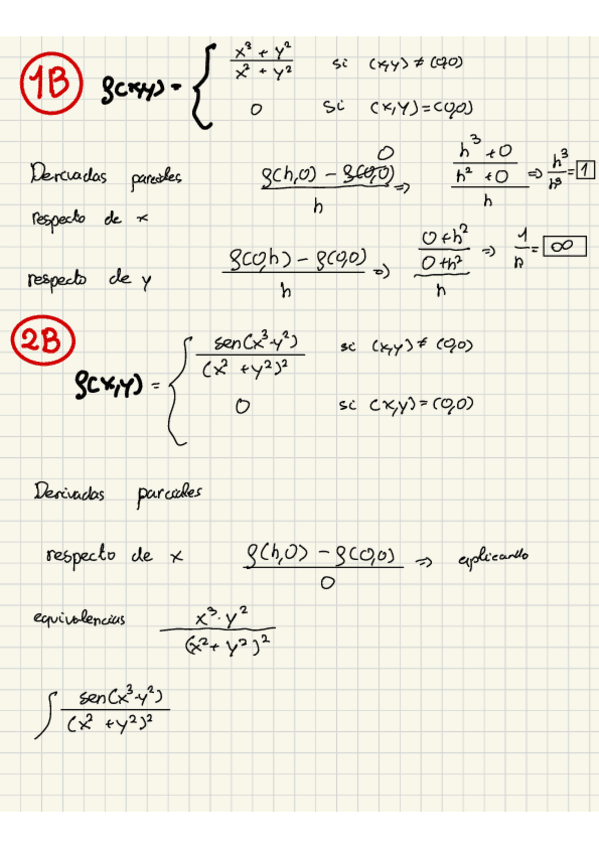 1B f(x,y) = { x³ + y² / x² + y² si (x,y) ≠ (0,0)
0 si (x,y) = (0,0)
Derivadas parciales f(h,0) - f(0,0) / h => h³ + 0 / h² + 0 / h => h³ / h³ = 1
0
respecto de x
respecto de y f(0,h) - f(0,0) / h => 0 + h² / 0 + h² / h => 1 / h = ∞
2B f(x,y) = { sen(x³·y²) / (x² + y²)² si (x,y) ≠ (0,0)
0 si (x,y) = (0,0)
Derivadas parciales
respecto de x f(h,0) - f(0,0) / 0 => aplicando
equivalencias x³·y² / (x² + y²)²
∫ sen(x³·y²) / (x² + y²)²